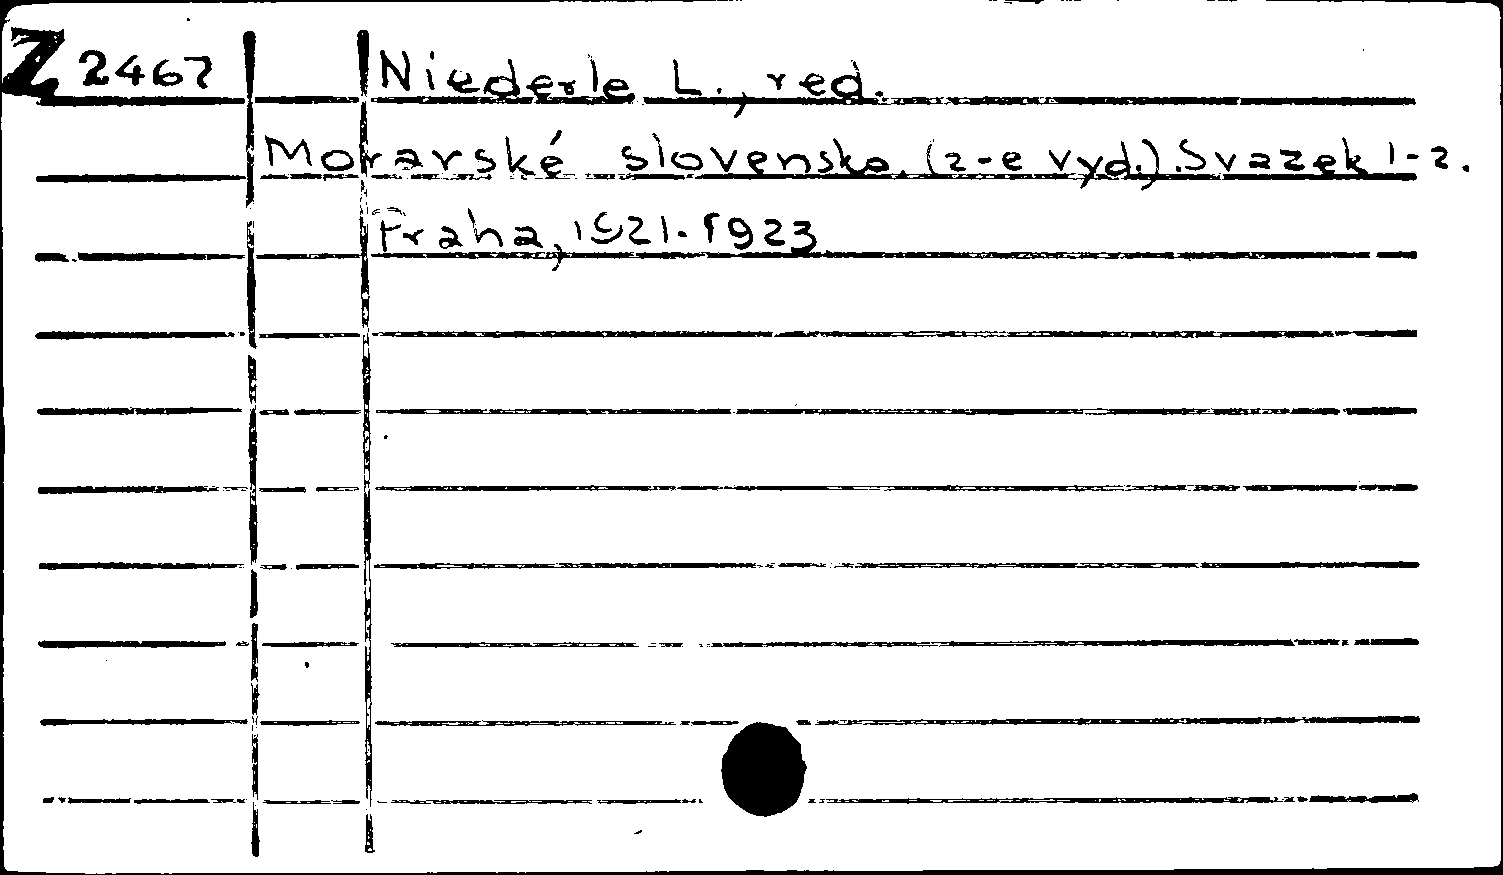 Z 2467 Niederle L., red.
Moravské slovensko. (2-e vyd.). Svazek 1-2.
Praha, 1921-1923